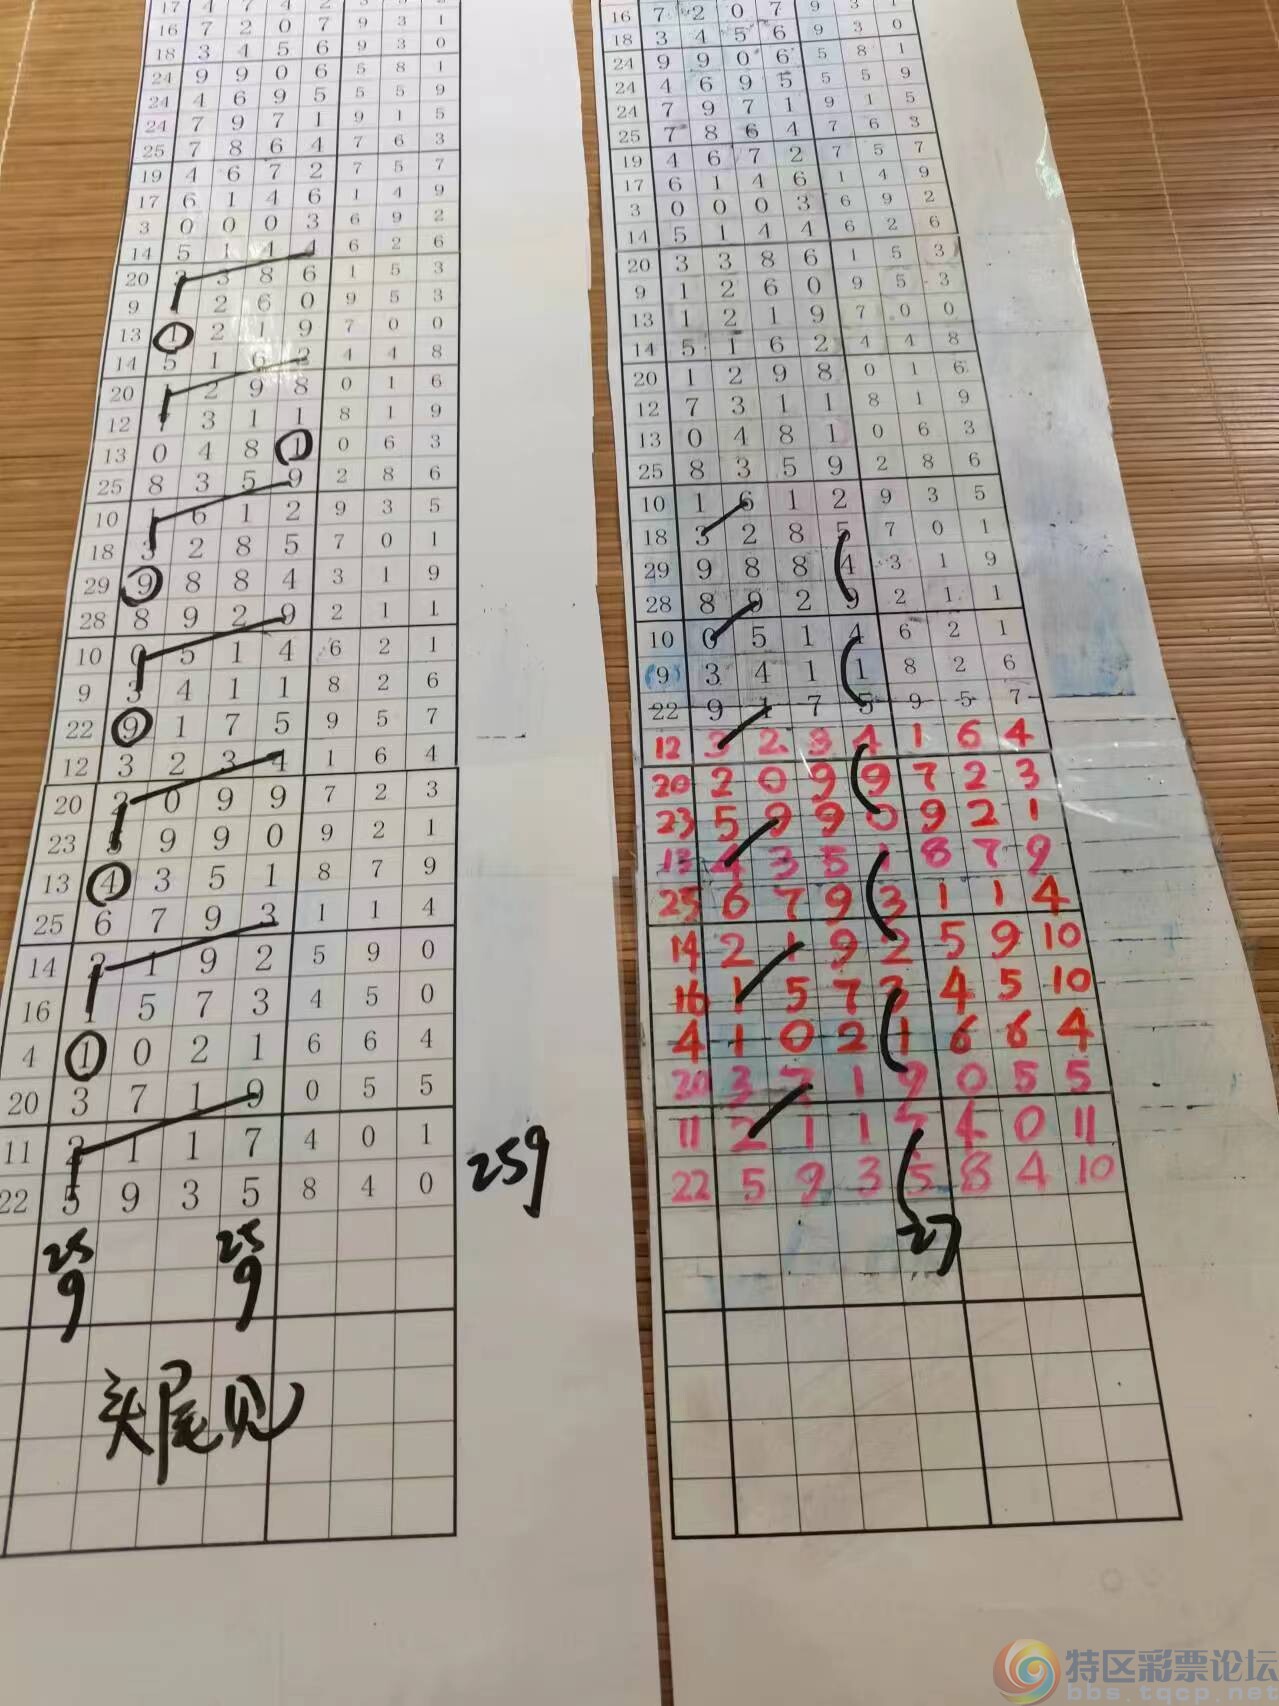 16 7 2 0 7 9 3 1
18 3 4 5 6 9 3 0
24 9 9 0 6 5 8 1
24 4 6 9 5 5 5 9
24 7 9 7 1 9 1 5
25 7 8 6 4 7 6 3
19 4 6 7 2 7 5 7
17 6 1 4 6 1 4 9
3 0 0 0 3 6 9 2
14 5 1 4 4 6 2 6
20 3 3 8 6 1 5 3
9 1 2 6 0 9 5 3
13 1 2 1 9 7 0 0
14 5 1 6 2 4 4 8
20 1 2 9 8 0 1 6
12 7 3 1 1 8 1 9
13 0 4 8 1 0 6 3
25 8 3 5 9 2 8 6
10 1 6 1 2 9 3 5
18 3 2 8 5 7 0 1
29 9 8 8 4 3 1 9
28 8 9 2 9 2 1 1
10 0 5 1 4 6 2 1
9 3 4 1 1 8 2 6
22 9 1 7 5 9 5 7
12 3 2 3 4 1 6 4
20 2 0 9 9 7 2 3
23 5 9 9 0 9 2 1
13 4 3 5 1 8 7 9
25 6 7 9 3 1 1 4
14 2 1 9 2 5 9 0
16 1 5 7 3 4 5 0
4 1 0 2 1 6 6 4
20 3 7 1 9 0 5 5
11 2 1 1 7 4 0 1
22 5 9 3 5 8 4 0
259
25 25
9 9
头尾见
16 7 2 0 7 9 3 1
18 3 4 5 6 9 3 0
24 9 9 0 6 5 8 1
24 4 6 9 5 5 5 9
24 7 9 7 1 9 1 5
25 7 8 6 4 7 6 3
19 4 6 7 2 7 5 7
17 6 1 4 6 1 4 9
3 0 0 0 3 6 9 2
14 5 1 4 4 6 2 6
20 3 3 8 6 1 5 3
9 1 2 6 0 9 5 3
13 1 2 1 9 7 0 0
14 5 1 6 2 4 4 8
20 1 2 9 8 0 1 6
12 7 3 1 1 8 1 9
13 0 4 8 1 0 6 3
25 8 3 5 9 2 8 6
10 1 6 1 2 9 3 5
18 3 2 8 5 7 0 1
29 9 8 8 4 3 1 9
28 8 9 2 9 2 1 1
10 0 5 1 4 6 2 1
(9) 3 4 1 1 8 2 6
22 9 1 7 5 9 5 7
12 3 2 3 4 1 6 4
20 2 0 9 9 7 2 3
23 5 9 9 0 9 2 1
13 4 3 5 1 8 7 9
25 6 7 9 3 1 1 4
14 2 1 9 2 5 9 10
16 1 5 7 3 4 5 10
4 1 0 2 1 6 6 4
20 3 7 1 9 0 5 5
11 2 1 1 7 4 0 11
22 5 9 3 5 8 4 10
27
特区彩票论坛
bbs.tqcp.net